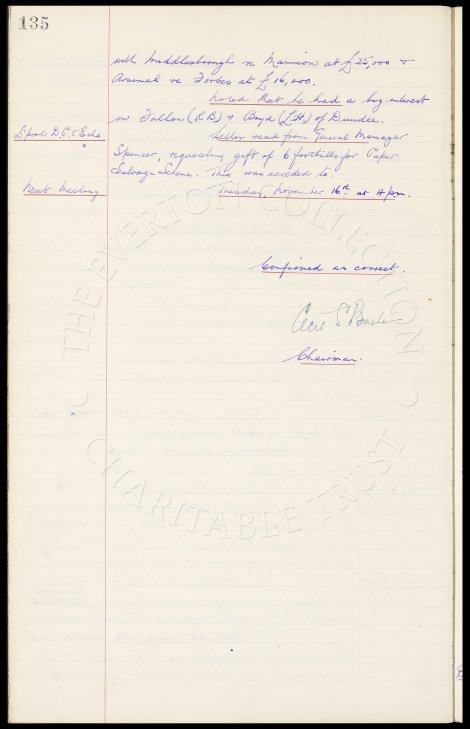 135
with Middlesbrough re Mannion at £25,000 &
Arsenal re Forbes at £16,000.
Noted that he had a big interest
in Fallon (R.B) & Boyd (L.H.) of Dundee.
L'pool D.P. & Echo
Letter read from General Manager
Spencer, requesting gift of 6 footballs for Paper
Salvage Scheme. This was acceded to.
Next Meeting
Tuesday, November 16th at 4 pm.
Confirmed as correct.
Cecil S Baxter
Chairman.
THE EVERTON COLLECTION
CHARITABLE TRUST